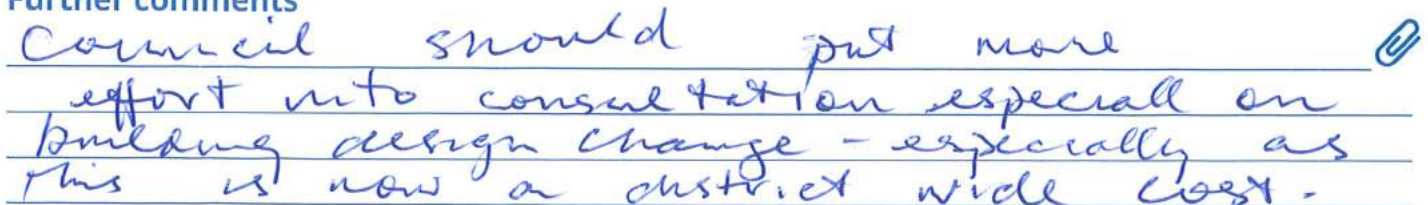 Further comments
Council should put more
effort into consultation especiall on
building design change - especially as
this is now a district wide cost.